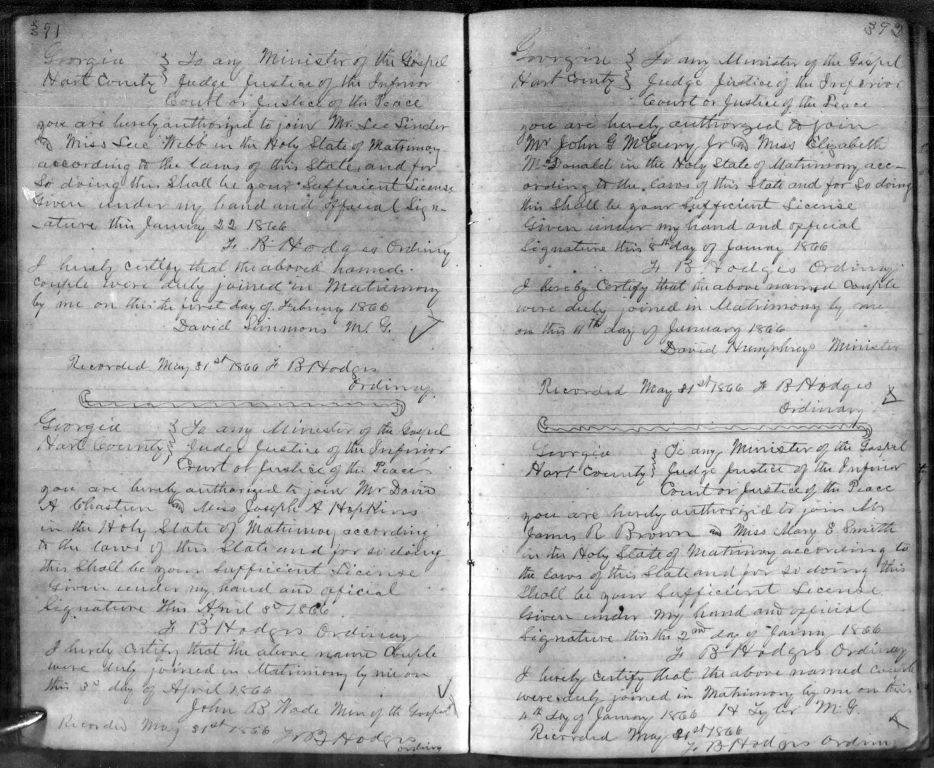 391
Georgia } To any Minister of the Gospel
Hart County } Judge Justice of the Inferior
Court or Justice of the Peace
you are hereby authorized to join Mr. Lee Sinder
and Miss Webb in the Holy State of Matrimony
according to the laws of this State and for
So doing this Shall be your Sufficient License
Given under my hand and official Sign-
ature this January 22 1866
F. B. Hodges Ordinary
I hereby certify that the above named
couple were duly joined in Matrimony
by me on this the first day of February 1866
David Simmons M. G.
Recorded May 31st 1866 F B Hodges
Ordinary
Georgia } To any Minister of the Gospel
Hart County } Judge Justice of the Inferior
Court or Justice of the Peace
you are hereby authorized to join Mr
A Chastien and Miss Joseph A Hopkins
in the Holy State of Matrimony according
to the laws of this State and for so doing
this Shall be your Sufficient License
Given under my hand and official
Signature this April 3d 1866
F B Hodges Ordinary
I hereby certify that the above name Couple
were duly joined in Matrimony by me on
this 3d day of April 1866
John B Wade Min of the Gospel
Recorded May 31st 1866 F B Hodges
Ordinary
392
Georgia } To any Minister of the Gospel
Hart County } Judge Justice of the Inferior
Court or Justice of the Peace
you are hereby authorized to join
Mr John G McCurry Jr and Miss Elizabeth
McDonald in the Holy State of Matrimony acc-
ording to the laws of this State and for So doing
this Shall be your Sufficient License
Given under my hand and official
Signature this 8th day of January 1866
F. B. Hodges Ordinary
I hereby Certify that the above named Couple
were duly joined in Matrimony by me
on this 11th day of January 1866
David Humphreys Minister
Recorded May 31st 1866 F B Hodges
Ordinary
Georgia } To any Minister of the Gospel
Hart County } Judge Justice of the Inferior
Court or Justice of the Peace
you are hereby authorized to join Mr
James R Brown and Miss Mary E Smith
in the Holy State of Matrimony according to
the laws of this State and for so doing this
Shall be your Sufficient License
Given under my hand and official
Signature this the 2nd day of January 1866
F B Hodges Ordinary
I hereby certify that the above named couple
were duly joined in Matrimony by me on this
4th day of January 1866 H Tyler M. G.
Recorded May 31st 1866
F B Hodges Ordinary